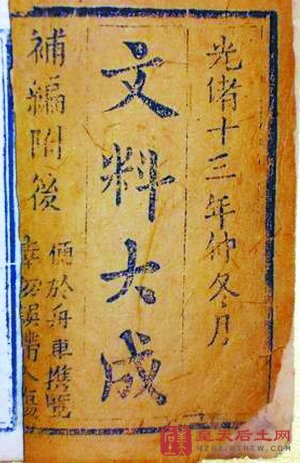 光緒十三年仲冬月
文料大成
補編附後
便於舟車携覽
幸勿誤帶入場
皇天后土网